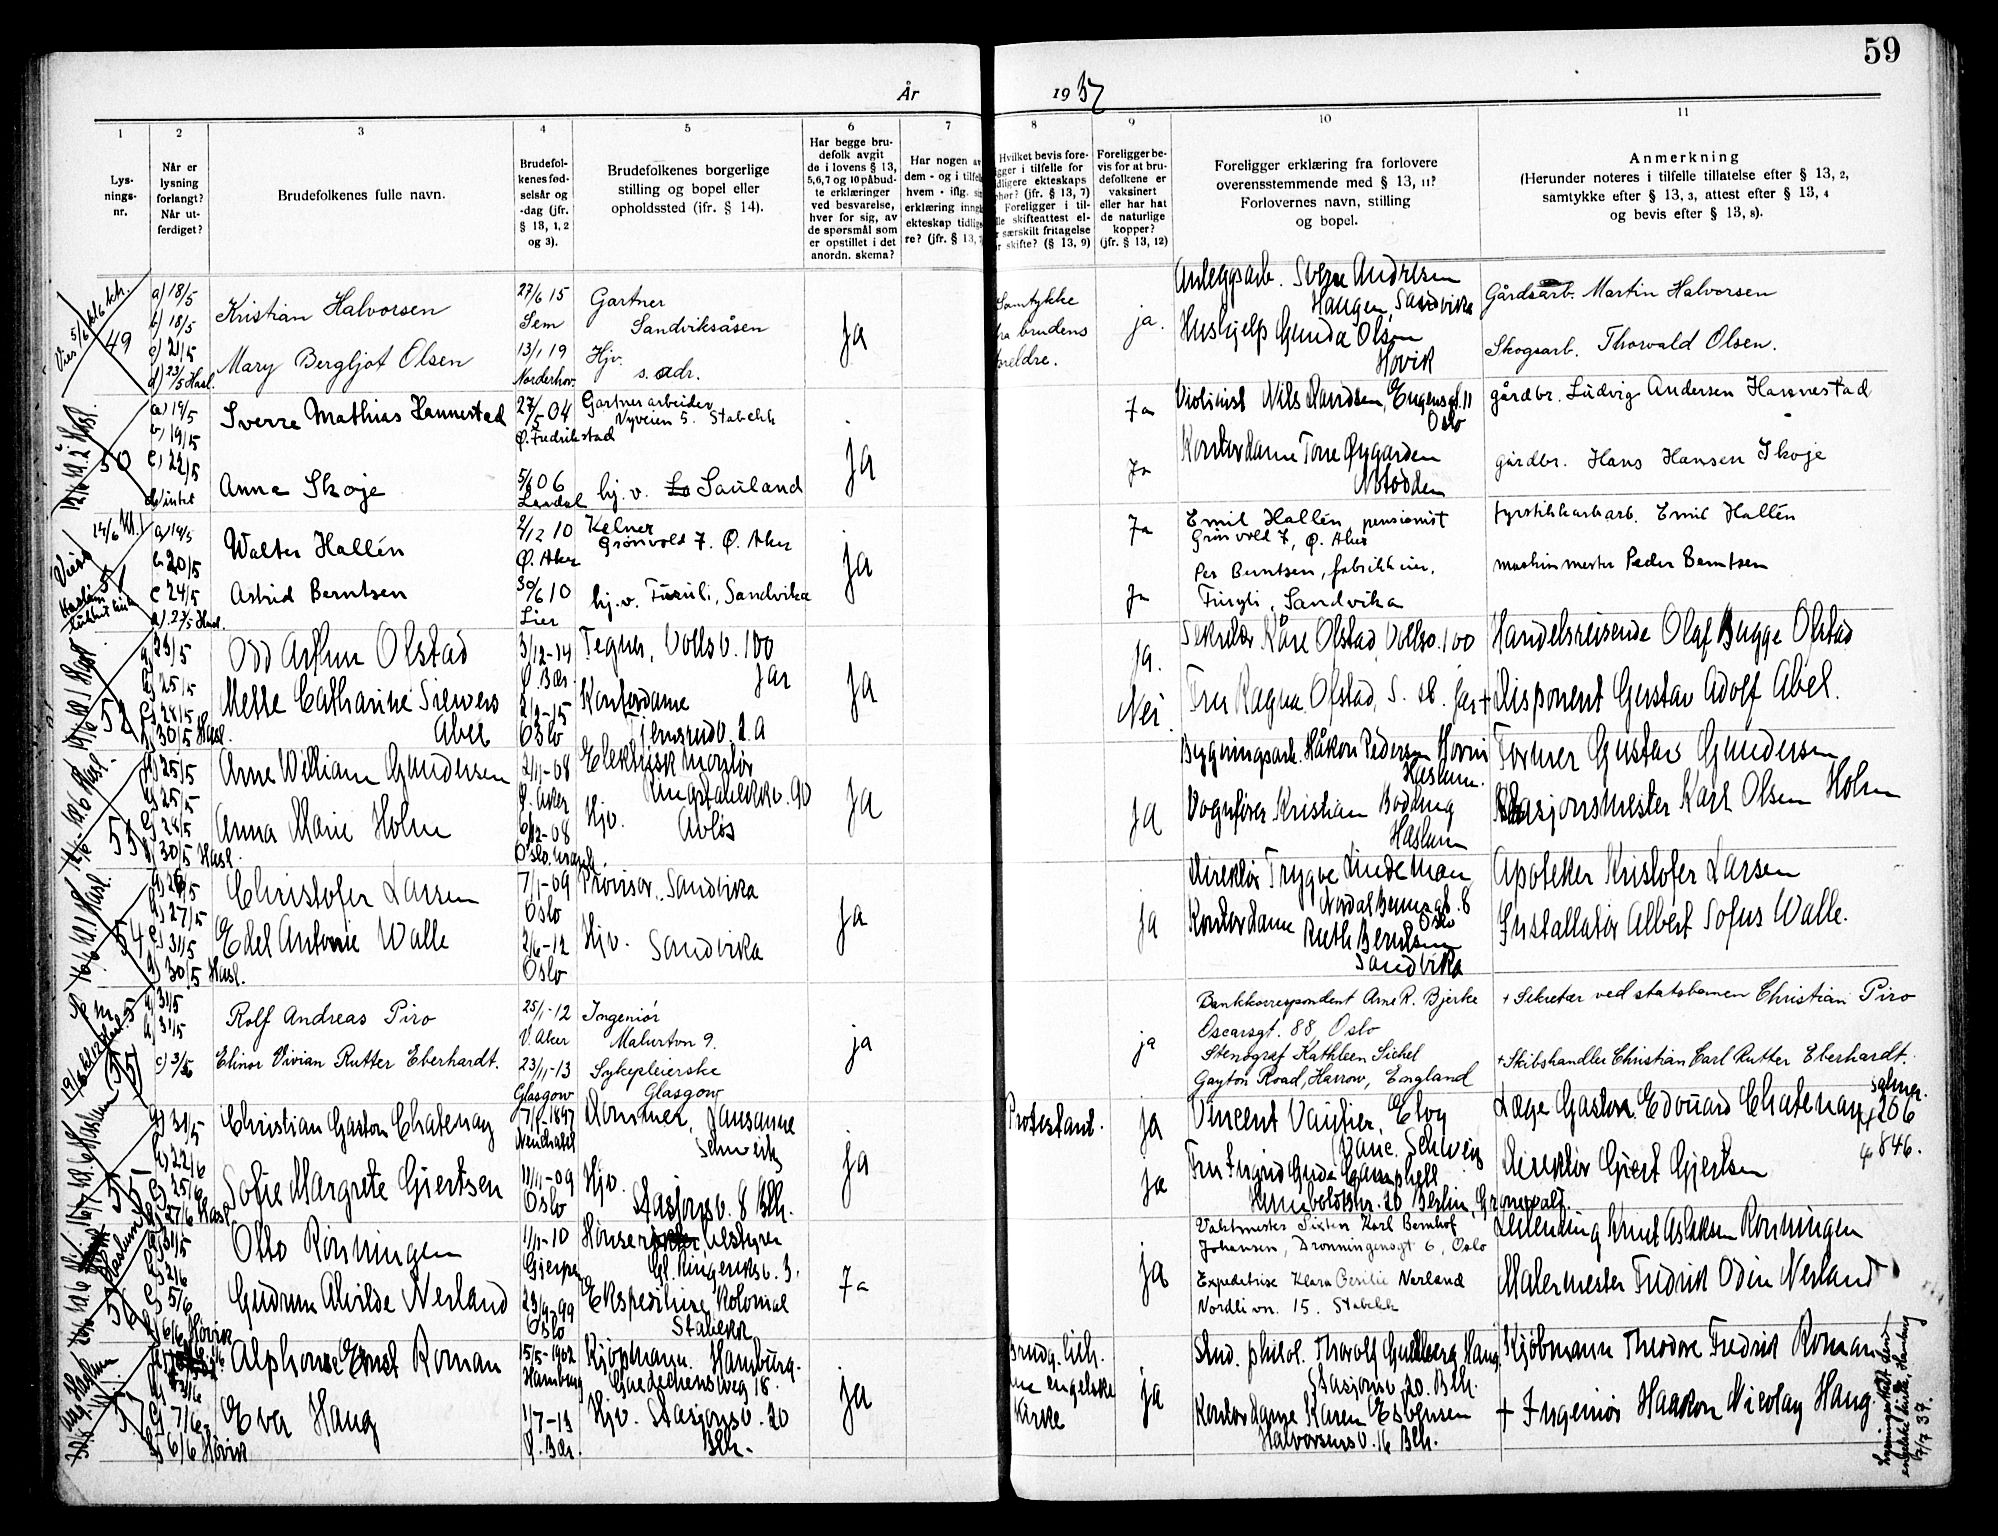 59
År
19 37
1
2
3
4
5
6
7
8
9
10
11
Lys-
nings-
nr.
Når er
lysning
forlangt?
Når ut-
ferdiget?
Brudefolkenes fulle navn.
Brudefol-
kenes fød-
selsår og
-dag (jfr.
§ 13, 1, 2
og 3).
Brudefolkenes borgerlige
stilling og bopel eller
opholdssted (ifr. § 14).
Har begge bru-
defolk avgit
de i lovens § 13,
5,6,7 og 10 påbud-
te erklæringer
ved besvarelse,
hver for sig, av
de spørsmål som
er opstillet i det
anordn. skema?
Har nogen av
dem - og i tilfelle
hvem - iflg.
erklæring inngå
ekteskap tidlige
re? (jfr. § 13, 7
Hvilket bevis fore-
ligger i tilfelle for
tidligere ekteskaps
ophør? (jfr. § 13, 7)
Foreligger i til-
felle skifteattest el-
særskilt fritagelse
skifte? (§ 13, 9)
Foreligger be-
vis for at bru-
defolkene er
vaksinert
eller har hat
de naturlige
kopper?
(jfr. § 13, 12)
Foreligger erklæring fra forlovere
overensstemmende med § 13, 11?
Forlovernes navn, stilling
og bopel.
Anmerkning
(Herunder noteres i tilfelle tillatelse efter § 13, 2,
samtykke efter § 13, 3, attest efter § 13, 4
og bevis efter § 13, 8).
49
a) 18/5
b) 18/5
c) 21/5
d) 23/5 Hasl.
Kristian Halvorsen
27/6 15
Sem
Gartner
Sandviksåsen
Mary Bergljot Olsen
13/1 19
Norderhov
Hjv.
s. adr.
Ja
Samtykke
fra brudens
foreldre.
ja.
Anleggsarb. Sverre Andresen
Haugen, Sandvika
Hushjelp Gunda Olsen
Høvik
Gårdsarb. Martin Halvorsen
Skogsarb. Thorvald Olsen.
50
a) 19/5
b) 19/5
c) 22/5
d) intet
Sverre Mathias Hannestad
27/5 04
Ø. Fredrikstad
Gartnerarbeider
Nyveien 5. Stabekk
Anna Skoje
5/6 06
hj. v. Sauland
Ja
Ja
Ja
Violinist Nils Knudsen, Eugensgt. 11
Oslo
Kontordame Tone Øygarden
Notodden
gårdbr. Ludvig Andersen Hannestad
gårdbr. Hans Hansen Skoje
a) 14/5
b) 20/5
c) 24/5
Walter Hallén
2/12 10
Ø. Aker
Kelner
Grønvold 7. Ø. Aker
Astrid Berntsen
30/6 10
Lier
hj. v. Furuli, Sandvika
Ja
Ja
Ja
Emil Hallén, pensionist
Grønvold 7, Ø. Aker
Per Berntsen, fabrikkeier,
Furuli, Sandvika
fyrstikkarb. Emil Hallén
maskinmester Peder Berntsen
52
b) 25/5
c) 28/5
d) 30/5 Hasl.
Odd Arthur Olstad
3/12-14
Ø. Bær.
Tegner, Vollsv. 100
Jar
Mette Catharine Siewers
Abel
2/2-15
Oslo
Kontordame
Tjernsrudv. 2 A
Ja
Ja.
Nei.
Sekretær Kåre Olstad, Vollsv. 100
Fru Ragna Olstad, s. st. Jar
Handelsreisende Olaf Bugge Olstad
+ Disponent Gustav Adolf Abel.
53
a) 25/5
b) 25/5
c) 28/5
d) 30/5 Hasl.
Arne William Gundersen
2/11-08
Ø. Aker
Elektrisk montør
Ringstabekkv. 90
Anna Marie Holm
6/12-08
Hjv.
Avløs
Ja
Ja
Bygningsarb. Håkon Pedersen Horni
Haslum.
Vognfører Kristian Bodding
Haslum
Former Gustav Gundersen
Stasjonsmester Karl Olsen Holm
54
a) 26/5
b) 27/5
c) 31/5
d) 30/5 Hasl.
Christofer Larsen
7/1-09
Oslo
Provisor, Sandvika
Edel Antonie Walle
2/6-12
Oslo
Hjv. Sandvika
Ja
Ja
Direktør Trygve Lindeman
Nordal Brunsgt. 8
Oslo
Kontordame
Ruth Berntsen
Sandvika
Apoteker Kristofer Larsen
Installatør Albert Sofus Walle.
55
a) 31/5
b) 31/5
c) 3/5
Rolf Andreas Piro
25/1-12
V. Aker
Ingeniør
Malurtvn 9.
Elinor Vivian Rutter Eberhardt.
23/11-13
Glasgow
Sykepleierske
Glasgow
ja
ja
Bankkorrespondent Arne R. Bjerke
Oscarsgt. 88, Oslo
Stenograf Kathleen Sichel
Gayton Road, Harrow, England
+ Sekretær ved statsbanen Christian Piro
+ Skibshandler Christian Carl Rutter Eberhardt.
a) 31/5
b) 22/6
c) 25/6
d) 27/6 Hasl.
Christian Gaston Chatenay
7/7-1897
Neuchatel
Lausanne
Schweitz
Sofie Margrete Gjertsen
11/11-09
Oslo
Hjv.
Stasjonsv. 8 Blk.
Ja
Protestant.
ja
ja
Vincent Vautier, Elvy
Schweiz
Fru Ingrid Gude Campbell
Humboldtstr. 20 Berlin, Grunewald.
Læge Gaston Edouard Chatenay
Direktør Gjert Gjertsen
salmer.
206
846.
a) 31/5
b) 2/6
c) 5/6
d) 6/6 Høvik
Otto Rønningen
1/11-10
Gjerpen
Hønseribestyrer
Gl. Ringeriksv. 3.
Gudrun Alvilde Nerland
23/9-99
Oslo
Ekspeditrise Kolonial
Stabekk
Ja
Ja
Vaktmester Sixten Karl Bernhof
Johansen, Dronningensgt 6, Oslo
Expeditrise Klara Cecilie Nerland
Nordlivn. 15. Stabekk
Knut Aslaksen Rønningen
Malermester Fredrik Odin Nerland
c) 7/6
d) 6/6 Høvik
Alphonse Ernst Roman
15/5-1902
Hamburg
Kjøpmann. Hamburg.
Guedechensweg 18.
Eva Haug
1/7-13
Ø. Bær
Hjv. Stasjonsv. 20
Blk.
ja
Brudg. tilh.
den engelske
Kirke
ja
Stud. philol. Thorolf Guldberg Haug
Stasjonsv. 20. Blk.
Kontordame Karen Esbensen
Halvorsensv. 16 Blk.
Kjøbmann Theodore Fredrik Roman
+ Ingeniør Haakon Nicolay Haug.
Lysningsattest
engelske kirke, Hamburg
7/7 37.